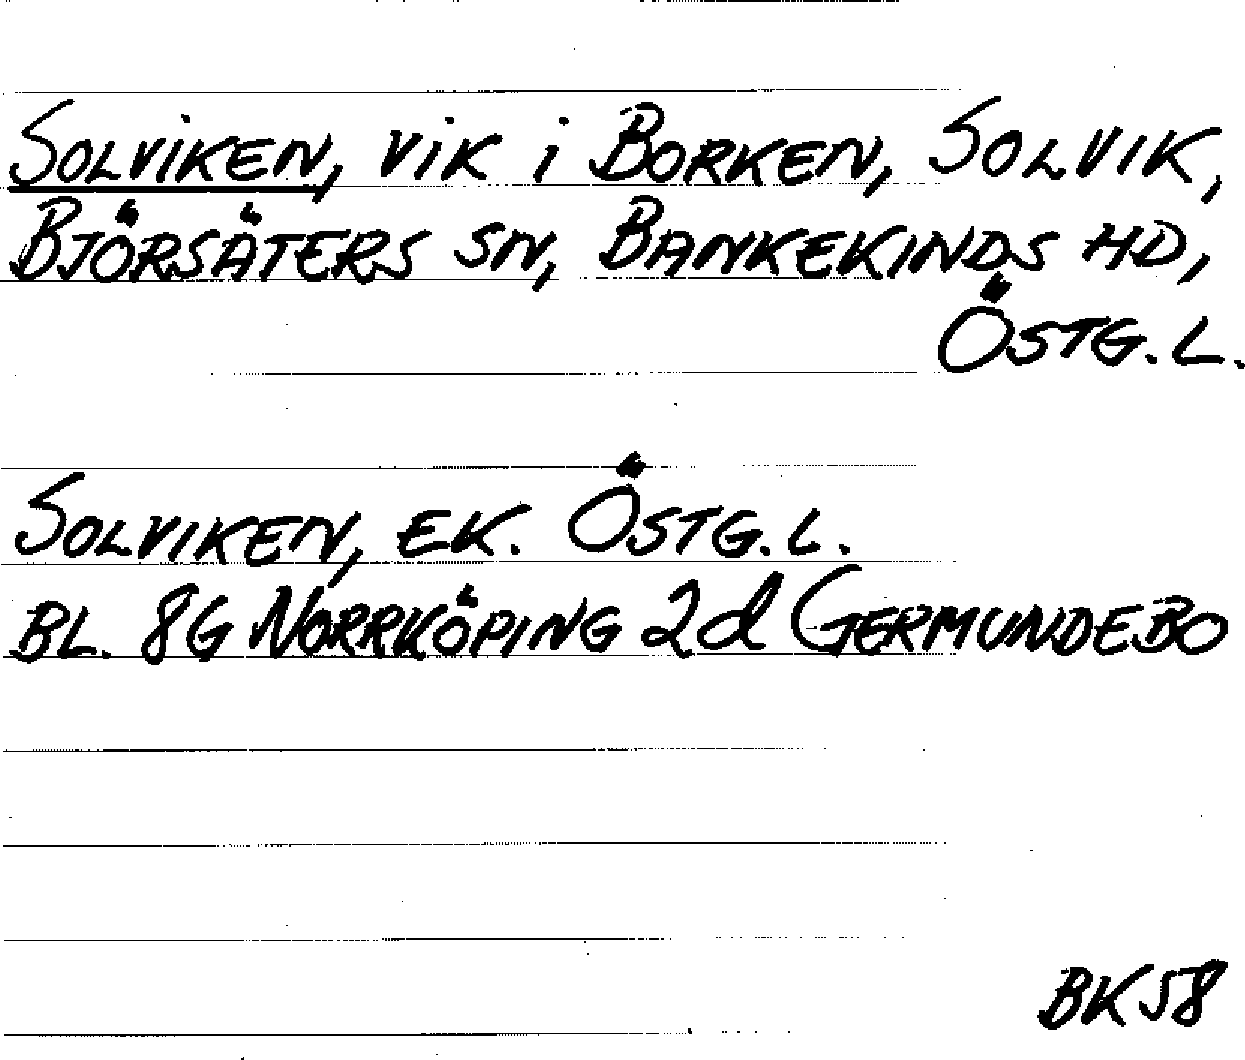 SOLVIKEN, VIK i BORKEN, SOLVIK,
BJÖRSÄTERS SN, BANKEKINDS HD,
ÖSTG. L.
SOLVIKEN, EK. ÖSTG. L.
BL. 8G NORRKÖPING 2d GERMUNDEBO
BK58